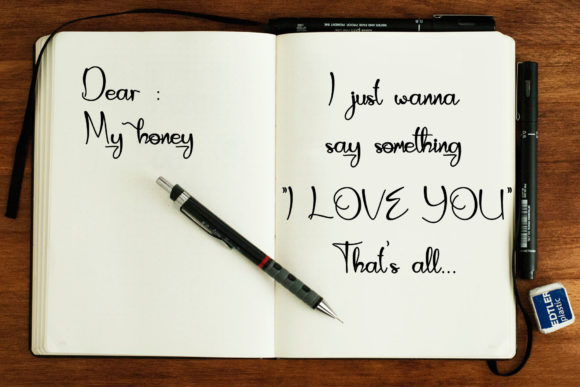 Dear :
My honey
I just wanna
say something
"I LOVE YOU"
That's all...
EDTLER
plastic